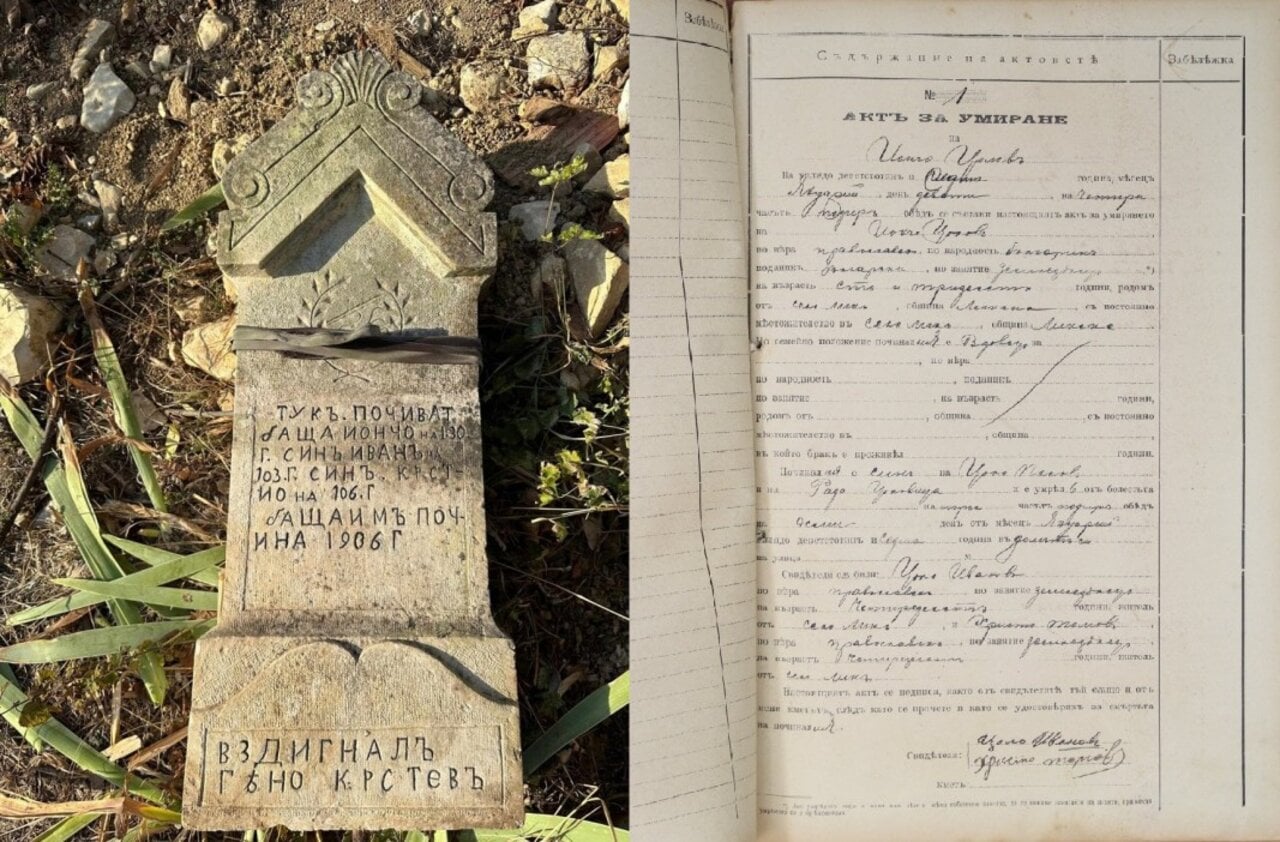 ТУКЪ. ПОЧИВАТ.
БАЩА ИОНЧО НА 130
Г. СИНЪ ИВАНЪ НА
103.Г. СИНЪ. КРСТ-
ИО НА 106.Г
БАЩА ИМЪ ПОЧ-
ИНА 1906 Г
ВЗДИГНАЛЪ
ГѢНО КРСТЕВЪ
Забѣлѣжка
Съдържание на актоветѣ
Забѣлѣжка
№ 1
АКТЪ ЗА УМИРАНЕ
на
Иончо Цоловъ
На хилядо деветстотинъ и седма година, мѣсец
Януарий, день девети на четири
часътъ подиръ обѣдъ се състави настоящиятъ актъ за умирането
на Иончо Цоловъ
по вѣра православенъ по народность българинъ
поданикъ български, по занятие земледѣлецъ *)
на възрасть сто и тридесеть години, родомъ
отъ село Ликъ, община Ликска съ постоянно
мѣстожителство въ село Ликъ, община Ликска
По семейно положение починалия е вдовецъ за
, по вѣра
по народность , поданикъ
по занятие , на възрасть години,
родомъ отъ , община , съ постоянно
мѣстожителство въ , община ,
въ който бракъ е преживѣл години.
Починалия е синъ на Цоло
и на Рада Цоловица и е умрѣлъ отъ болестьта
на три часътъ подиръ обѣдъ
на осми день отъ мѣсец Януарий
хилядо деветстотинъ и седма година въ
на улица
Свидѣтели сѫ били: Цоло Ивановъ
по вѣра православенъ по занятие земледѣлецъ
на възрасть четиридесеть години, жителъ
отъ село Ликъ, и Христо Томовъ,
по вѣра православенъ, по занятие земледѣлецъ
на възрасть четиридесеть години, жителъ
отъ село Ликъ
Настоящиятъ актъ се подписа, както отъ свидѣтелитѣ тъй също и отъ
мене кметътъ, слѣдъ като се прочете и като се удостовѣрихъ за смъртьта
на починалия.
Свидѣтели: Цоло Ивановъ
Христо Томовъ
Кметъ